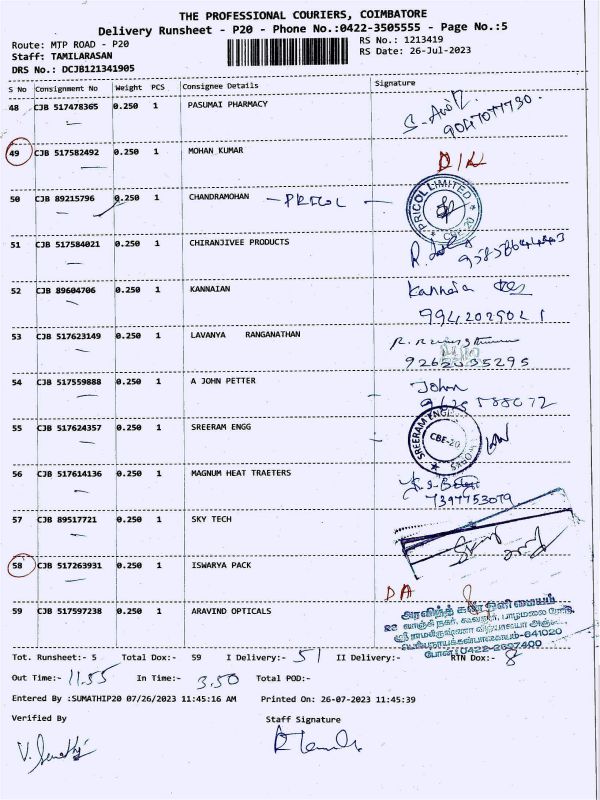 THE PROFESSIONAL COURIERS, COIMBATORE
Delivery Runsheet - P20 - Phone No.:0422-3505555 - Page No.:5
Route: MTP ROAD - P20 RS No.: 1213419
Staff: TAMILARASAN RS Date: 26-Jul-2023
DRS No.: DCJB121341905
S No Consignment No Weight PCS Consignee Details Signature
48 CJB 517478365 0.250 1 PASUMAI PHARMACY
9047077730
49 CJB 517582492 0.250 1 MOHAN KUMAR D/L
50 CJB 89215796 0.250 1 CHANDRAMOHAN - PRICOL - PRICOL LIMITED CBE-20
51 CJB 517584021 0.250 1 CHIRANJIVEE PRODUCTS
52 CJB 89604706 0.250 1 KANNAIAN Kannaia
9942025021
53 CJB 517623149 0.250 1 LAVANYA RANGANATHAN
54 CJB 517559888 0.250 1 A JOHN PETTER John
55 CJB 517624357 0.250 1 SREERAM ENGG SREERAM ENGG WORKS CBE-20
56 CJB 517614136 0.250 1 MAGNUM HEAT TRAETERS
7397753079
57 CJB 89517721 0.250 1 SKY TECH
58 CJB 517263931 0.250 1 ISWARYA PACK DA
59 CJB 517597238 0.250 1 ARAVIND OPTICALS அரவிந்த் கண் ஒளி மையம்
Tot. Runsheet:- 5 Total Dox:- 59 I Delivery:- 51 II Delivery:- RTN Dox:- 8
Out Time:- 11.55 In Time:- 3.50 Total POD:-
Entered By :SUMATHIP20 07/26/2023 11:45:16 AM Printed On: 26-07-2023 11:45:39
Verified By Staff Signature